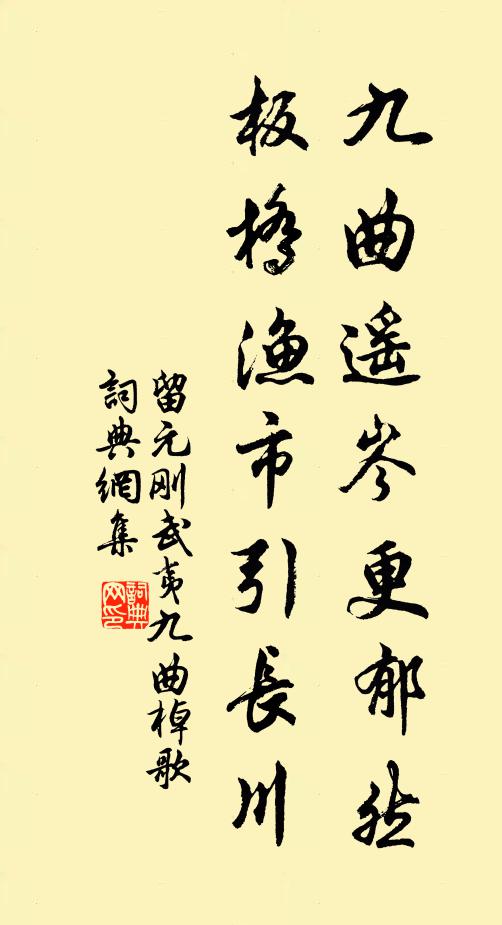 九曲遥岑更郁然
板橋漁市引長川
留元刚武夷九曲棹歌
詞典網集
詞典网印